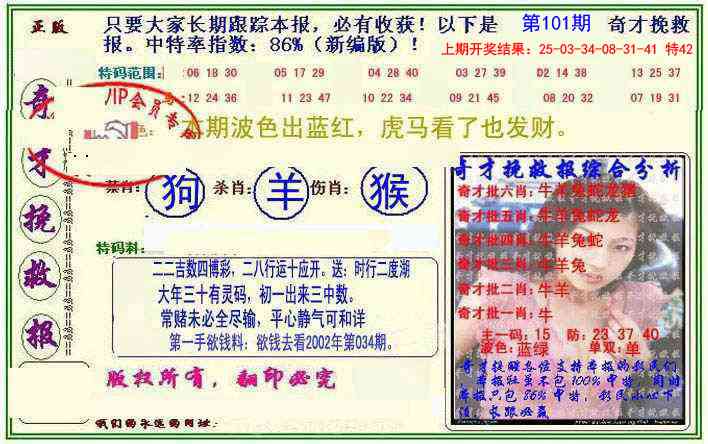 正版
只要大家长期跟踪本报，必有收获！以下是 第101期 奇才挽救
报。中特率指数：86%（新编版）！
上期开奖结果：25-03-34-08-31-41 特42
特码范围：06 18 30 05 17 29 04 28 40 03 27 39 D2 14 38 13 25 37
12 24 36 11 23 47 10 22 34 09 21 45 08 20 32 07 19 31
VIP会员专
本期波色出蓝红，虎马看了也发财。
狗 杀肖：羊 伤肖：猴
特码料：
二二吉数四博彩，二八行运十应开。送：时行二度湖
大年三十有灵码，初一出来三中数。
常赌未必全尽输，平心静气可和详
第一手欲钱料：欲钱去看2002年第034期。
版权所有，翻印必究
我们的永远的网址：
奇
才
挽
救
报
奇才挽救报综合分析
奇才批六肖：牛羊兔蛇龙猪
奇才批五肖：牛羊兔蛇龙
奇才批四肖：牛羊兔蛇
奇才批三肖：牛羊兔
奇才批二肖：牛羊
奇才批一肖：牛
主一码：15 防：23 37 40
波色：蓝绿 单双：单
奇才挽救各位支持本报的彩民们
，本报壮虽不包100%中特，同时
本报只包 86%中特，彩民小心下
注，长跟必赢